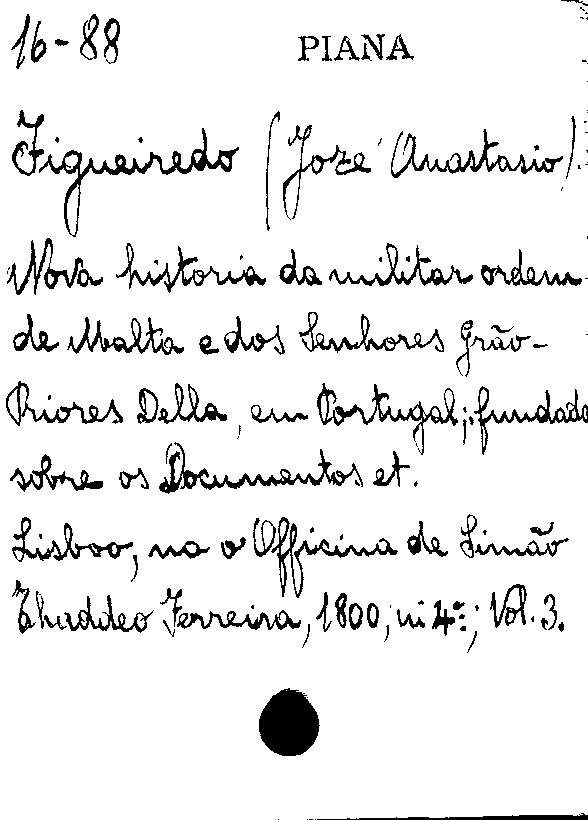 16-88 PIANA
Figueiredo (Joze Anastasio).
Nova historia da militar ordem
de Malta e dos Senhores Grão-
Priores Della, em Portugal; fundada
sobre os Documentos et.
Lisboo, na o Officina de Simão
Thaddeo Ferreira, 1800; in 4º; Vol. 3.